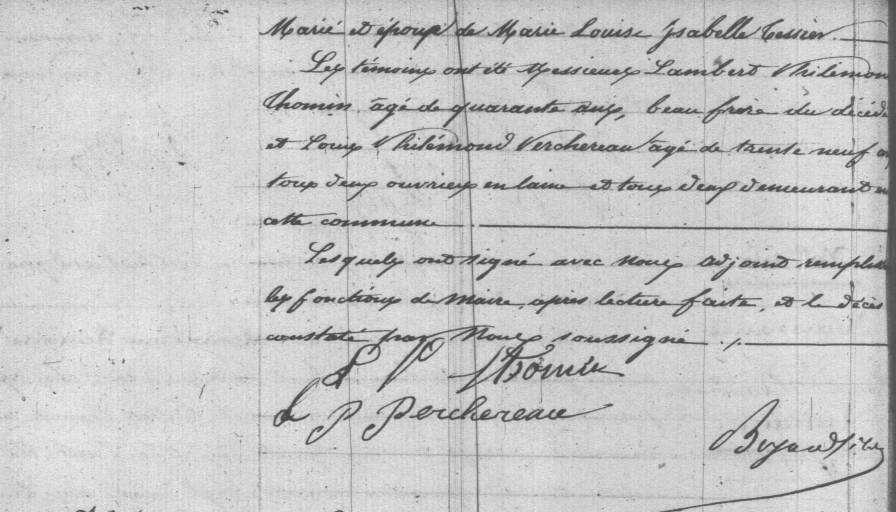 Marié et époux de Marie Louise Isabelle Tessier
Les témoins ont été Messieurs Lambert Philémon
Thomin, âgé de quarante ans, beau frère du décédé
et Louis Philémond Verchereau âgé de trente neuf a
tous deux ouvriers en laine et tous deux demeurant e
cette commune
Lesquels ont signé avec Nous adjoint rempliss
les fonctions de Maire, après lecture faite, et le décès
constaté par Nous soussigné
L P Thomin
L P Perchereau